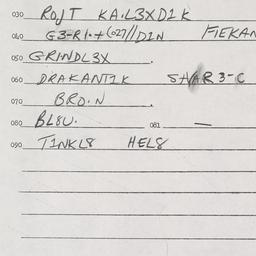 030 ROJT KAIL3XD1K
040 FIEKAN
050 GRINDL3X.
060 DRAKANT1K SHAR3-C
070 BRO.N.
080 BL8U. 081 —
090 T1NKL8 HEL8